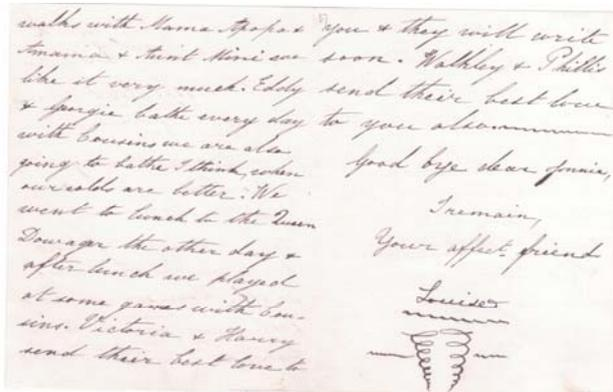 walks with Mama Apapa &
Amama & Aunt Minie we
like it very much. Eddy
& Georgie bathe every day
with Cousins we are also
going to bathe I think, when
our colds are better. We
went to lunch to the Queen
Dowager the other day &
after lunch we played
at some games with Cou-
sins. Victoria & Harry
send their best love to
you & they will write
soon. Walkley & Phillis
send their best love
to you also.
Good bye dear
I remain,
Your affect. friend
Louise